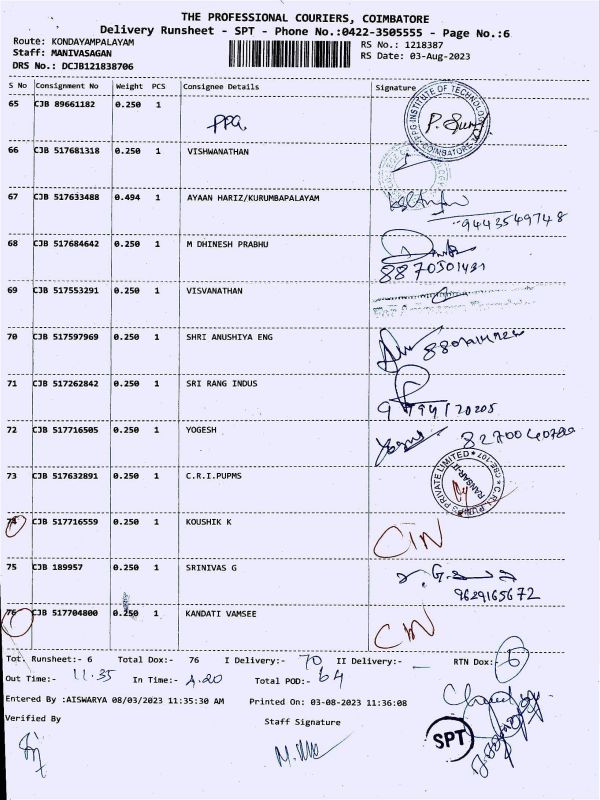 THE PROFESSIONAL COURIERS, COIMBATORE
Delivery Runsheet - SPT - Phone No.:0422-3505555 - Page No.:6
Route: KONDAYAMPALAYAM
Staff: MANIVASAGAN
DRS No.: DCJB121838706
RS No.: 1218387
RS Date: 03-Aug-2023
S No Consignment No Weight PCS Consignee Details Signature
65 CJB 89661182 0.250 1
PPG INSTITUTE OF TECHNOLOGY COIMBATORE
66 CJB 517681318 0.250 1 VISHWANATHAN
67 CJB 517633488 0.494 1 AYAAN HARIZ/KURUMBAPALAYAM
9443549748
68 CJB 517684642 0.250 1 M DHINESH PRABHU
8870501431
69 CJB 517553291 0.250 1 VISVANATHAN
70 CJB 517597969 0.250 1 SHRI ANUSHIYA ENG
71 CJB 517262842 0.250 1 SRI RANG INDUS
72 CJB 517716505 0.250 1 YOGESH
73 CJB 517632891 0.250 1 C.R.I.PUPMS
C.R.I. PUMPS PRIVATE LIMITED
74 CJB 517716559 0.250 1 KOUSHIK K
CIN
75 CJB 189957 0.250 1 SRINIVAS G
9629165672
76 CJB 517704800 0.250 1 KANDATI VAMSEE
CIN
Tot. Runsheet:- 6 Total Dox:- 76 I Delivery:- 70 II Delivery:- RTN Dox:- 6
Out Time:- 11.35 In Time:- 4.20 Total POD:- 64
Entered By :AISWARYA 08/03/2023 11:35:30 AM Printed On: 03-08-2023 11:36:08
Verified By Staff Signature
SPT